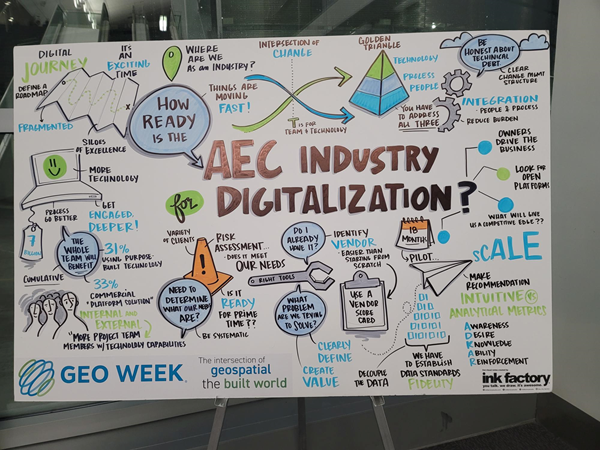 DIGITAL
JOURNEY
DEFINE A
ROADMAP
FRAGMENTED
IT'S
AN
EXCITING
TIME
SILOES
OF EXCELLENCE
WHERE
ARE WE
AS AN INDUSTRY?
HOW
READY
IS THE
THINGS ARE
MOVING
FAST!
INTERSECTION OF
CHANGE
IS FOR
TEAM & TECHNOLOGY
GOLDEN
TRIANGLE
TECHNOLOGY
PROCESS
PEOPLE
YOU HAVE
TO ADDRESS
ALL THREE
BE
HONEST ABOUT
TECHNICAL
DEBT
CLEAR
CHANGE MGMT
STRUCTURE
INTEGRATION
PEOPLE & PROCESS
REDUCE BURDEN
AEC INDUSTRY
for DIGITALIZATION?
OWNERS
DRIVE THE
BUSINESS
LOOK FOR
OPEN
PLATFORMS
WHAT WILL GIVE
US A COMPETITIVE EDGE??
MORE
TECHNOLOGY
PROCESS
GO BETTER
GET
ENGAGED,
DEEPER!
7
BILLION
THE
WHOLE
TEAM WILL
BENEFIT
31%
USING PURPOSE
BUILT TECHNOLOGY
CUMULATIVE
33%
COMMERCIAL
"PLATFORM SOLUTION"
INTERNAL and
EXTERNAL
"MORE PROJECT TEAM
MEMBERS W/TECHNOLOGY CAPABILITIES
VARIETY
OF CLIENTS
RISK
ASSESSMENT...
DOES IT MEET
OUR NEEDS
NEED TO
DETERMINE
WHAT OUR
ARE?
IS IT
READY
FOR PRIME
TIME??
BE SYSTEMATIC
DO I
ALREADY
HAVE IT?
RIGHT TOOLS
WHAT
PROBLEM
ARE WE TRYING
TO SOLVE?
CLEARLY
DEFINE
CREATE
VALUE
IDENTIFY
VENDOR
EASIER THAN
STARTING FROM
SCRATCH
USE A
VENDOR
SCORE
CARD
DECOUPLE
THE DATA
18
MONTH
PILOT...
SCALE
MAKE
RECOMMENDATION
INTUITIVE VS
ANALYTICAL METRICS
WE HAVE
TO ESTABLISH
DATA STANDARDS
FIDELITY
AWARENESS
DESIRE
KNOWLEDGE
ABILITY
REINFORCEMENT
GEO WEEK
The intersection of
geospatial
the built world
ink factory
you talk. we draw. it's awesome.